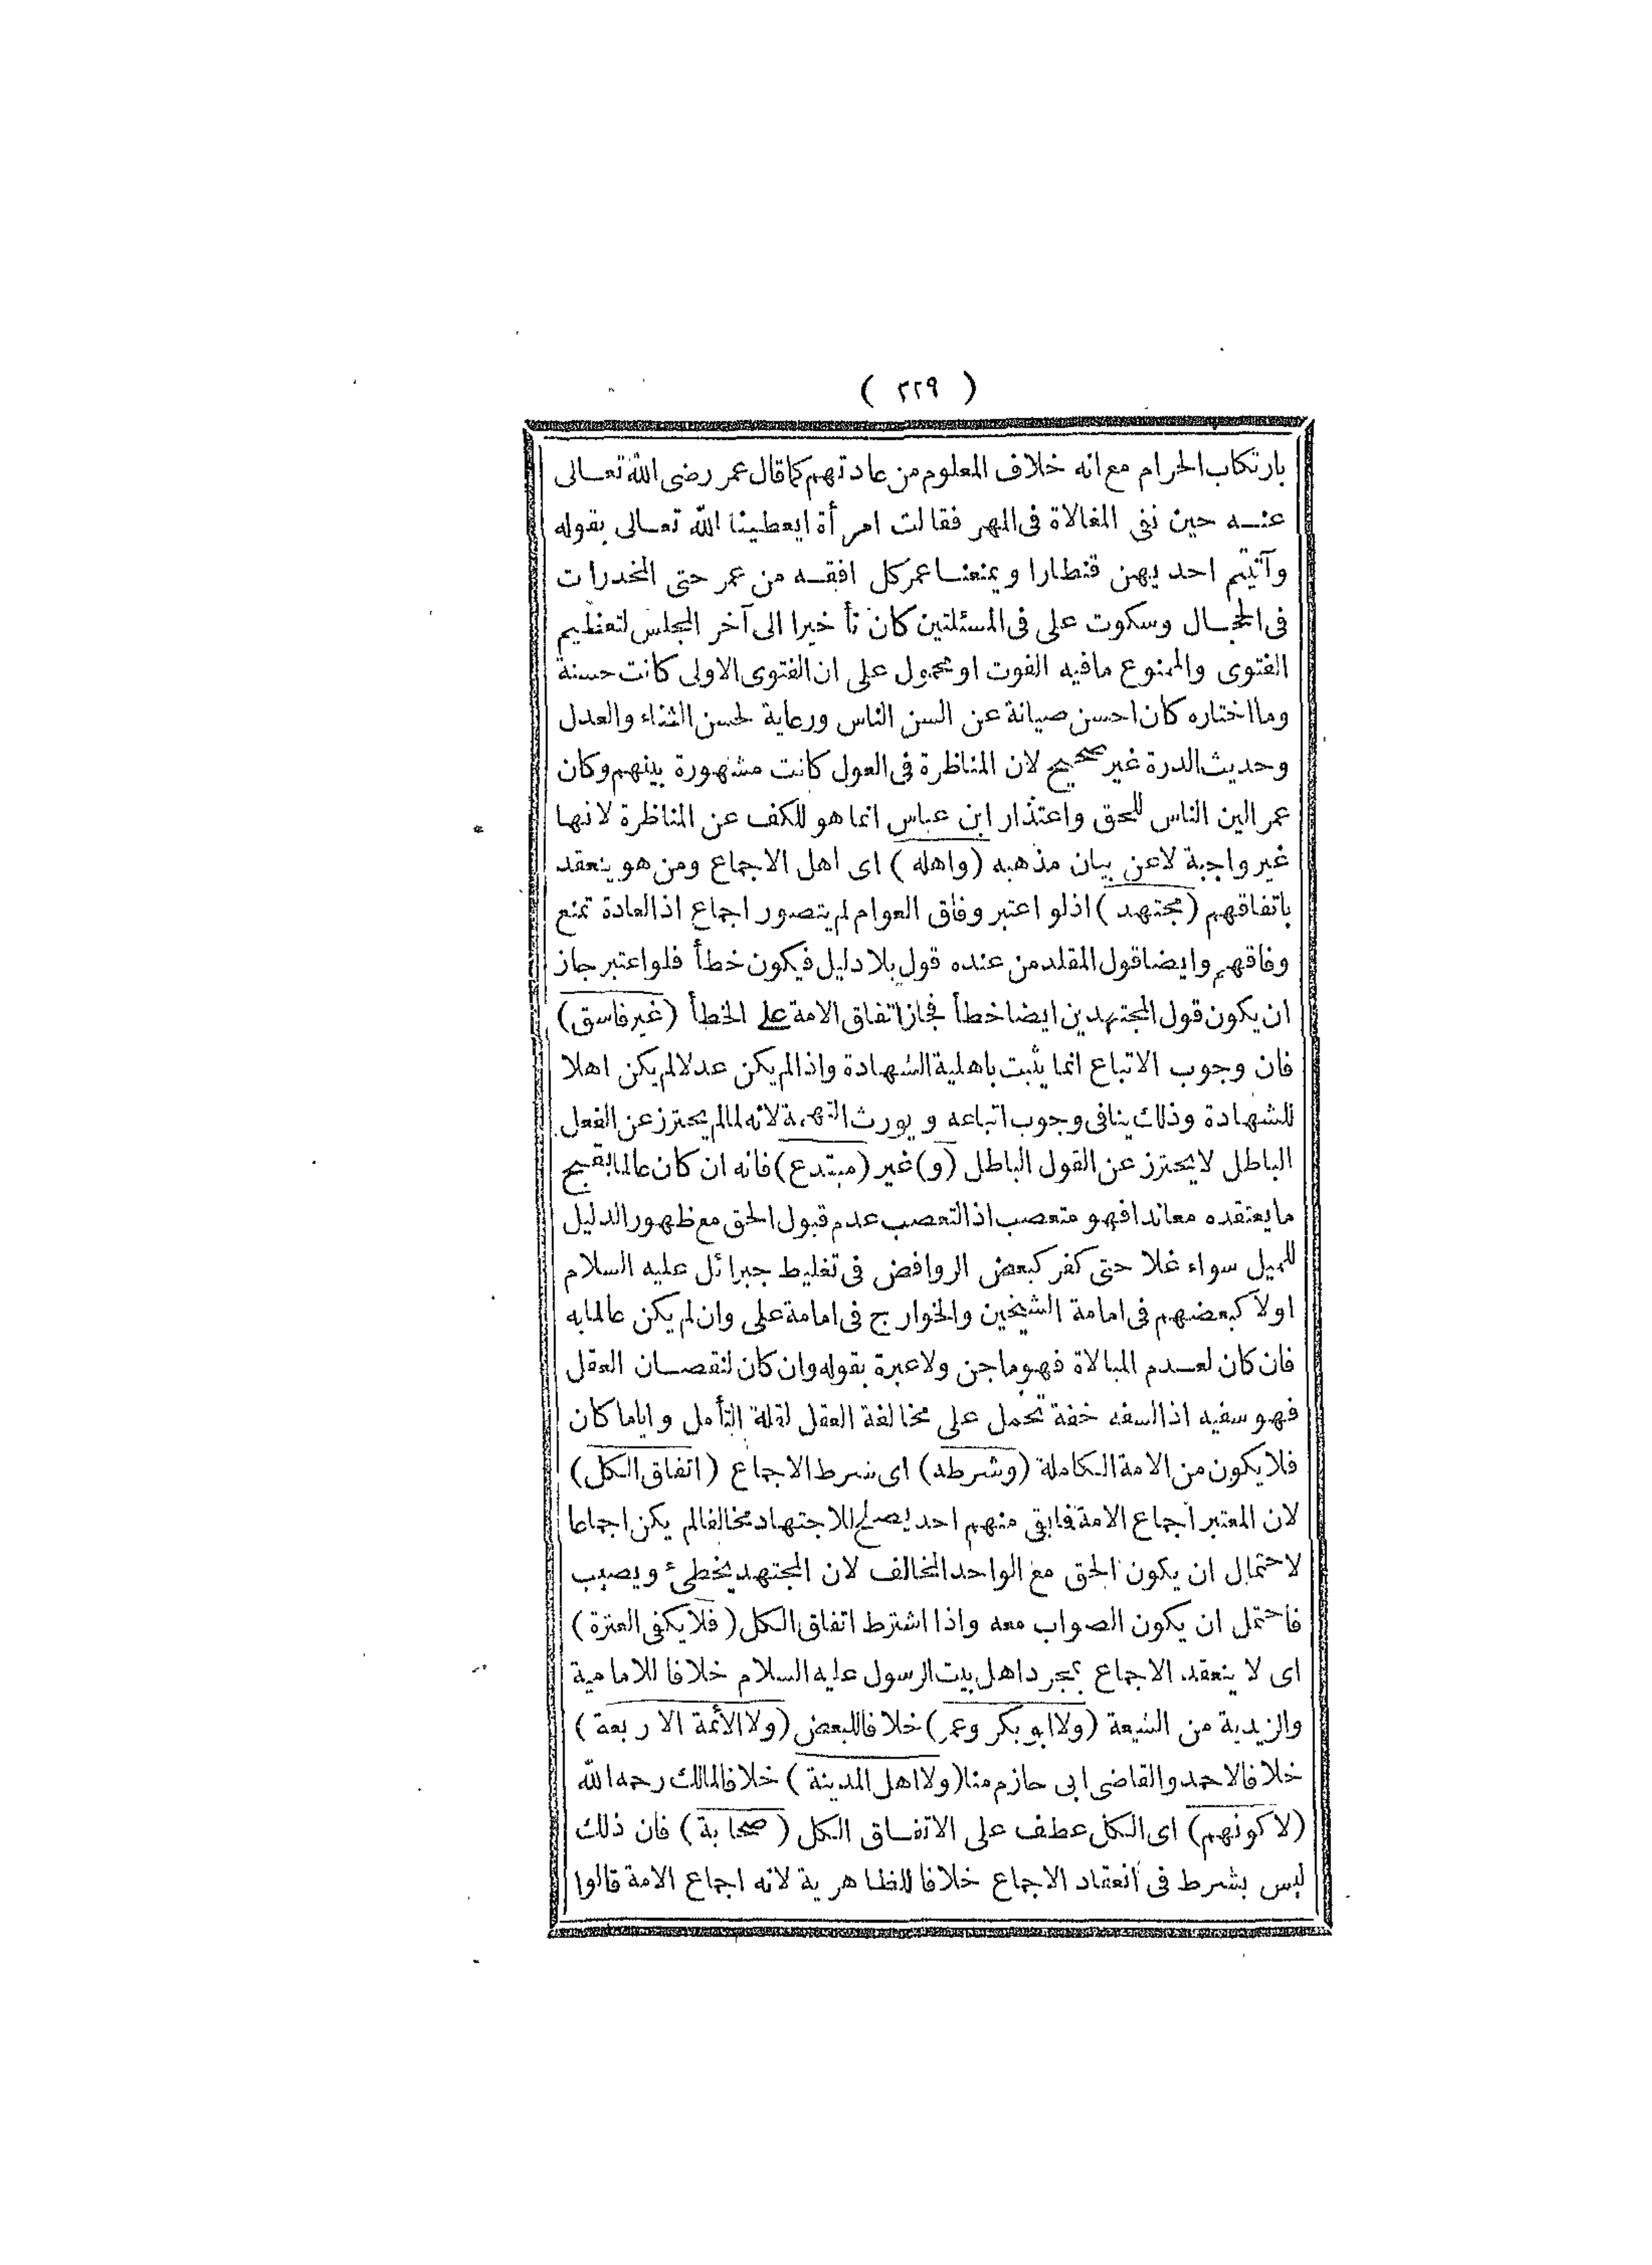 ( ٢٢٩ )
بارتكاب الحرام مع انه خلاف المعلوم من عادتهم كما قال عمر رضى الله تعالى
عنه حين نفى المغالاة فى المهر فقالت امرأة ايعطينا الله تعالى بقوله
وآتيتم احديهن قنطارا ويمنعنا عمر كل افقه من عمر حتى المخدرات
فى الحجال وسكوت على فى المسئلتين كان تأخيرا الى آخر المجلس لتعظيم
الفتوى والممنوع مافيه الفوت او محمول على ان الفتوى الاولى كانت حسنة
وما اختاره كان احسن صيانة عن السن الناس ورعاية لحسن الثناء والعدل
وحديث الدرة غير صحيح لان المناظرة فى العول كانت مشهورة بينهم وكان
عمر الين الناس للحق واعتذار ابن عباس انما هو للكف عن المناظرة لانها
غير واجبة لاعن بيان مذهبه (واهله) اى اهل الاجماع ومن هو ينعقد
باتفاقهم (مجتهد) اذلو اعتبر وفاق العوام لم يتصور اجماع اذ العادة تمنع
وفاقهم وايضا قول المقلد من عنده قول بلا دليل فيكون خطأ فلو اعتبر جاز
ان يكون قول المجتهدين ايضا خطأ فجاز اتفاق الامة على الخطأ (غير فاسق)
فان وجوب الاتباع انما يثبت باهلية الشهادة واذا لم يكن عدلا لم يكن اهلا
للشهادة وذلك ينافى وجوب اتباعه ويورث التهمة لانه لما لم يحترز عن الفعل
الباطل لايحترز عن القول الباطل (و) غير (مبتدع) فانه ان كان عالما بقبح
ما يعتقده معاندا فهو متعصب اذ التعصب عدم قبول الحق مع ظهور الدليل
للميل سواء غلا حتى كفر كبعض الروافض فى تغليط جبرائل عليه السلام
اولا كبعضهم فى امامة الشيخين والخوارج فى امامة على وان لم يكن عالما به
فان كان لعدم المبالاة فهو ماجن ولاعبرة بقوله وان كان لنقصان العقل
فهو سفيه اذ السفه خفة تحمل على مخالفة العقل لقلة التأمل واياما كان
فلا يكون من الامة الكاملة (وشرطه) اى شرط الاجماع (اتفاق الكل)
لان المعتبر اجماع الامة فمابقى منهم احد يصلح للاجتهاد مخالفا لم يكن اجماعا
لاحتمال ان يكون الحق مع الواحد المخالف لان المجتهد يخطئ ويصيب
فاحتمل ان يكون الصواب معه واذا اشترط اتفاق الكل (فلا يكفى العترة)
اى لا ينعقد الاجماع بمجرد اهل بيت الرسول عليه السلام خلافا للامامية
والزيدية من الشيعة (ولا ابو بكر وعمر) خلافا للبعض (ولا الأئمة الاربعة)
خلافا لاحمد والقاضى ابى حازم منا (ولا اهل المدينة) خلافا لمالك رحمه الله
(لا كونهم) اى الكل عطف على الاتفاق الكل (صحابة) فان ذلك
ليس بشرط فى انعقاد الاجماع خلافا للظاهرية لانه اجماع الامة قالوا